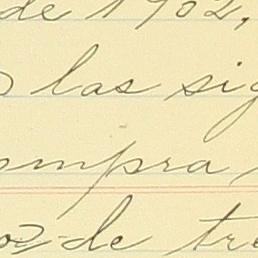 de 1902,
las sig
ompra
de tre